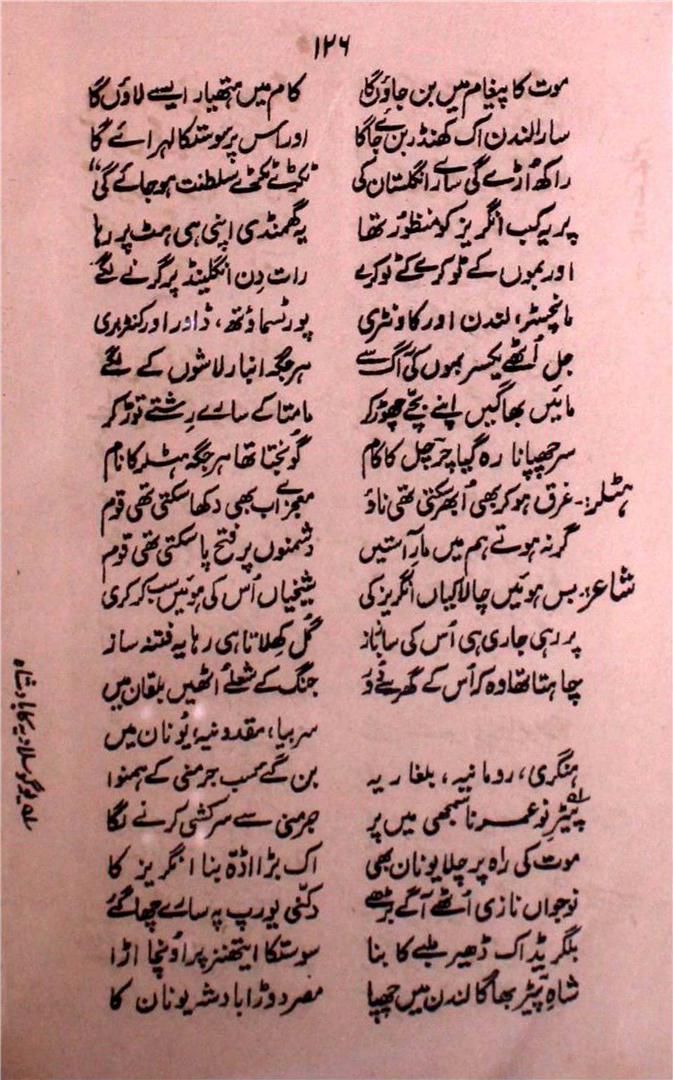 ۱۲۶
موت کا پیغام میں بن جاؤں گا کام میں ہتھیار ایسے لاؤں گا
سارا لندن اک کھنڈر بن جائے گا اور اس پر سوستکا لہرائے گا
راکھ اُڑے گی سارے انگلستان کی ٹکڑے ٹکڑے سلطنت ہو جائے گی"
پر یہ کب انگریز کو منظور تھا یہ گھمنڈی اپنی ہی ہٹ پر رہا
اور بموں کے ٹوکرے کے ٹوکرے رات دِن انگلینڈ پر گرنے لگے
مانچسٹر، لندن اور کاونٹری پورٹسماؤتھ، ڈاور اور کنٹربری
جل اُٹھے یکسر بموں کی آگ سے ہر جگہ انبار لاشوں کے لگے
مائیں بھاگیں اپنے بچّے چھوڑ کر مامتا کے سارے رِشتے توڑ کر
سر چھپانا رہ گیا چرچل کا کام گونجتا تھا ہر جگہ ہٹلر کا نام
ہٹلر:۔ غرق ہو کر بھی اُبھر سکتی تھی ناؤ معجزے اب بھی دکھا سکتی تھی قوم
گر نہ ہوتے ہم میں مارِ آستیں دشمنوں پر فتح پا سکتی تھی قوم
شاعر:۔ بس ہوئیں چالاکیاں انگریز کی شیخیاں اُس کی ہوئیں سب کرکری
پر رہی جاری ہی اُس کی ساز باز گُل کھلاتا ہی رہا یہ فتنہ ساز
چاہتا تھا وہ کہ اُس کے گھر سے دُور جنگ کے شعلے اُٹھیں بلقان میں
سربیا، مقدونیہ، یُونان میں
ہنگری، رومانیہ، بلغاریہ بن گے سب جرمنی کے ہمنوا
پیٹر۱ نو عمر نا سمجھی میں پر جرمنی سے سرکشی کرنے لگا
موت کی راہ پر چلا یونان بھی اک بڑا اڈّہ بنا انگریز کا
نوجواں نازی اُٹھے آگے بڑھے دکنّی یورپ پہ سارے چھا گئے
بلگریڈ اک ڈھیر ملبے کا بنا سوستکا ایتھنز پر اُونچا اڑا
شاہِ پیٹر بھاگا لندن میں چھپا مصر دوڑا بادشہ یونان کا
۱ یوگوسلاویہ کا بادشاہ